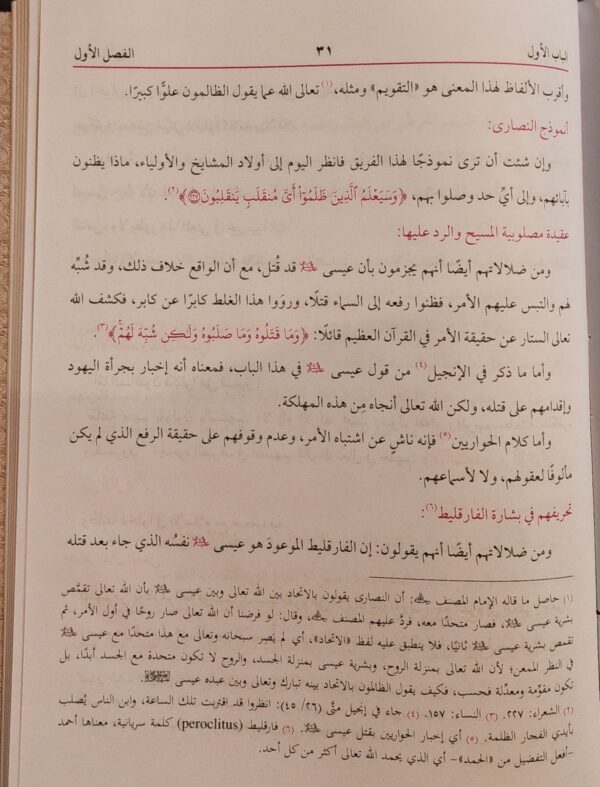 الباب الأول ٣١ الفصل الأول
وأقرب الألفاظ لهذا المعنى هو «التقويم» ومثله،(١) تعالى الله عما يقول الظالمون علوًّا كبيرًا.
أنموذج النصارى:
وإن شئت أن ترى نموذجًا لهذا الفريق فانظر اليوم إلى أولاد المشايخ والأولياء، ماذا يظنون
بآبائهم، وإلى أيِّ حد وصلوا بهم، ﴿وَسَيَعْلَمُ ٱلَّذِينَ ظَلَمُوٓاْ أَىَّ مُنقَلَبٍ يَنقَلِبُونَ ۝﴾(٢).
عقيدة مصلوبية المسيح والرد عليها:
ومن ضلالاتهم أيضًا أنهم يجزمون بأن عيسى ﵇ قد قُتل، مع أن الواقع خلاف ذلك، وقد شُبِّه
لهم والتبس عليهم الأمر، فظنوا رفعه إلى السماء قتلًا، وروَوا هذا الغلط كابرًا عن كابر، فكشف الله
تعالى الستار عن حقيقة الأمر في القرآن العظيم قائلًا: ﴿وَمَا قَتَلُوهُ وَمَا صَلَبُوهُ وَلَٰكِن شُبِّهَ لَهُمْ﴾(٣).
وأما ما ذكر في الإنجيل(٤) من قول عيسى ﵇ في هذا الباب، فمعناه أنه إخبار بجرأة اليهود
وإقدامهم على قتله، ولكن الله تعالى أنجاه مِن هذه المهلكة.
وأما كلام الحواريين(٥) فإنه ناشٍ عن اشتباه الأمر، وعدم وقوفهم على حقيقة الرفع الذي لم يكن
مألوفًا لعقولهم، ولا لأسماعهم.
تحريفهم في بشارة الفارقليط(٦):
ومن ضلالاتهم أيضًا أنهم يقولون: إن الفارقليط الموعودَ هو عيسى ﵇ نفسُه الذي جاء بعد قتله
(١) حاصل ما قاله الإمام المصنف ﵀: أن النصارى يقولون بالاتحاد بين الله تعالى وبين عيسى ﵇ بأن الله تعالى تقمَّص
بشرية عيسى ﵇، فصار متحدًا معه، فردَّ عليهم المصنف ﵀، وقال: لو فرضنا أن الله تعالى صار روحًا في أول الأمر، ثم
تقمص بشرية عيسى ﵇ ثانيًا، فلا ينطبق عليه لفظ «الاتحاد»، أي لم يَصِر سبحانه وتعالى مع هذا متحدًا مع عيسى ﵇
في النظر الممعن؛ لأن الله تعالى بمنزلة الروح، وبشرية عيسى بمنزلة الجسد، والروح لا تكون متحدة مع الجسد أبدًا، بل
تكون مقوِّمة ومعدِّلة فحسب، فكيف يقول الظالمون بالاتحاد بينه تبارك وتعالى وبين عبده عيسى
(٢) الشعراء: ٢٢٧. (٣) النساء: ١٥٧. (٤) جاء في إنجيل متَّى (٢٦/ ٤٥): انظروا قد اقتربت تلك الساعة، وابن الناس يُصلب
بأيدي الفجار الظلمة. (٥) أي إخبار الحواريين بقتل عيسى ﵇. (٦) فارقليط (peroclitus) كلمة سريانية، معناها أحمد
-أفعل التفضيل من «الحمد»- أي الذي يحمد الله تعالى أكثر من كل أحد.